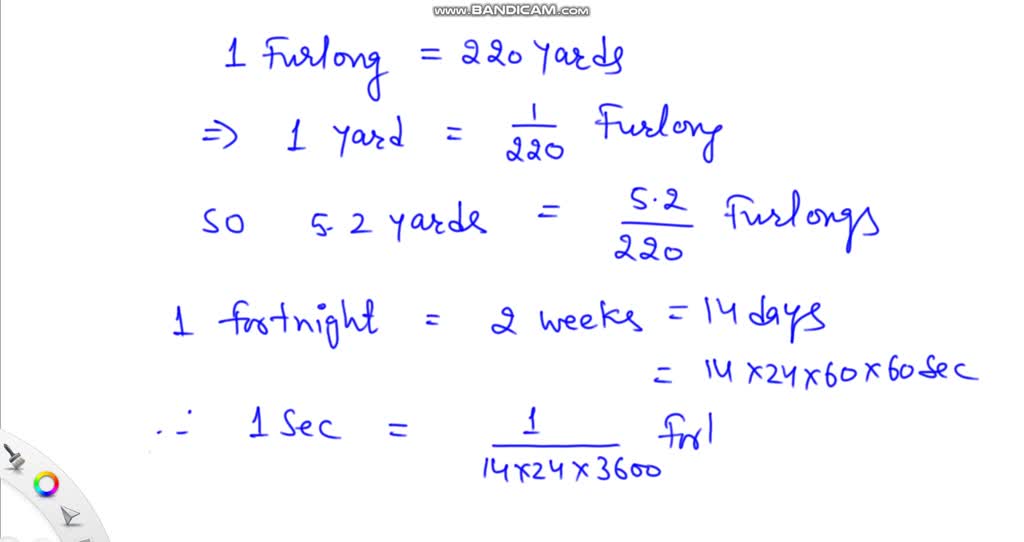 www.BANDICAM.com
1 Furlong = 220 yards
⇒ 1 yard = 1/220 Furlong
so 5.2 yards = 5.2/220 Furlongs
1 fortnight = 2 weeks = 14 days
= 14×24×60×60 Sec
∴ 1 Sec = 1/14×24×3600